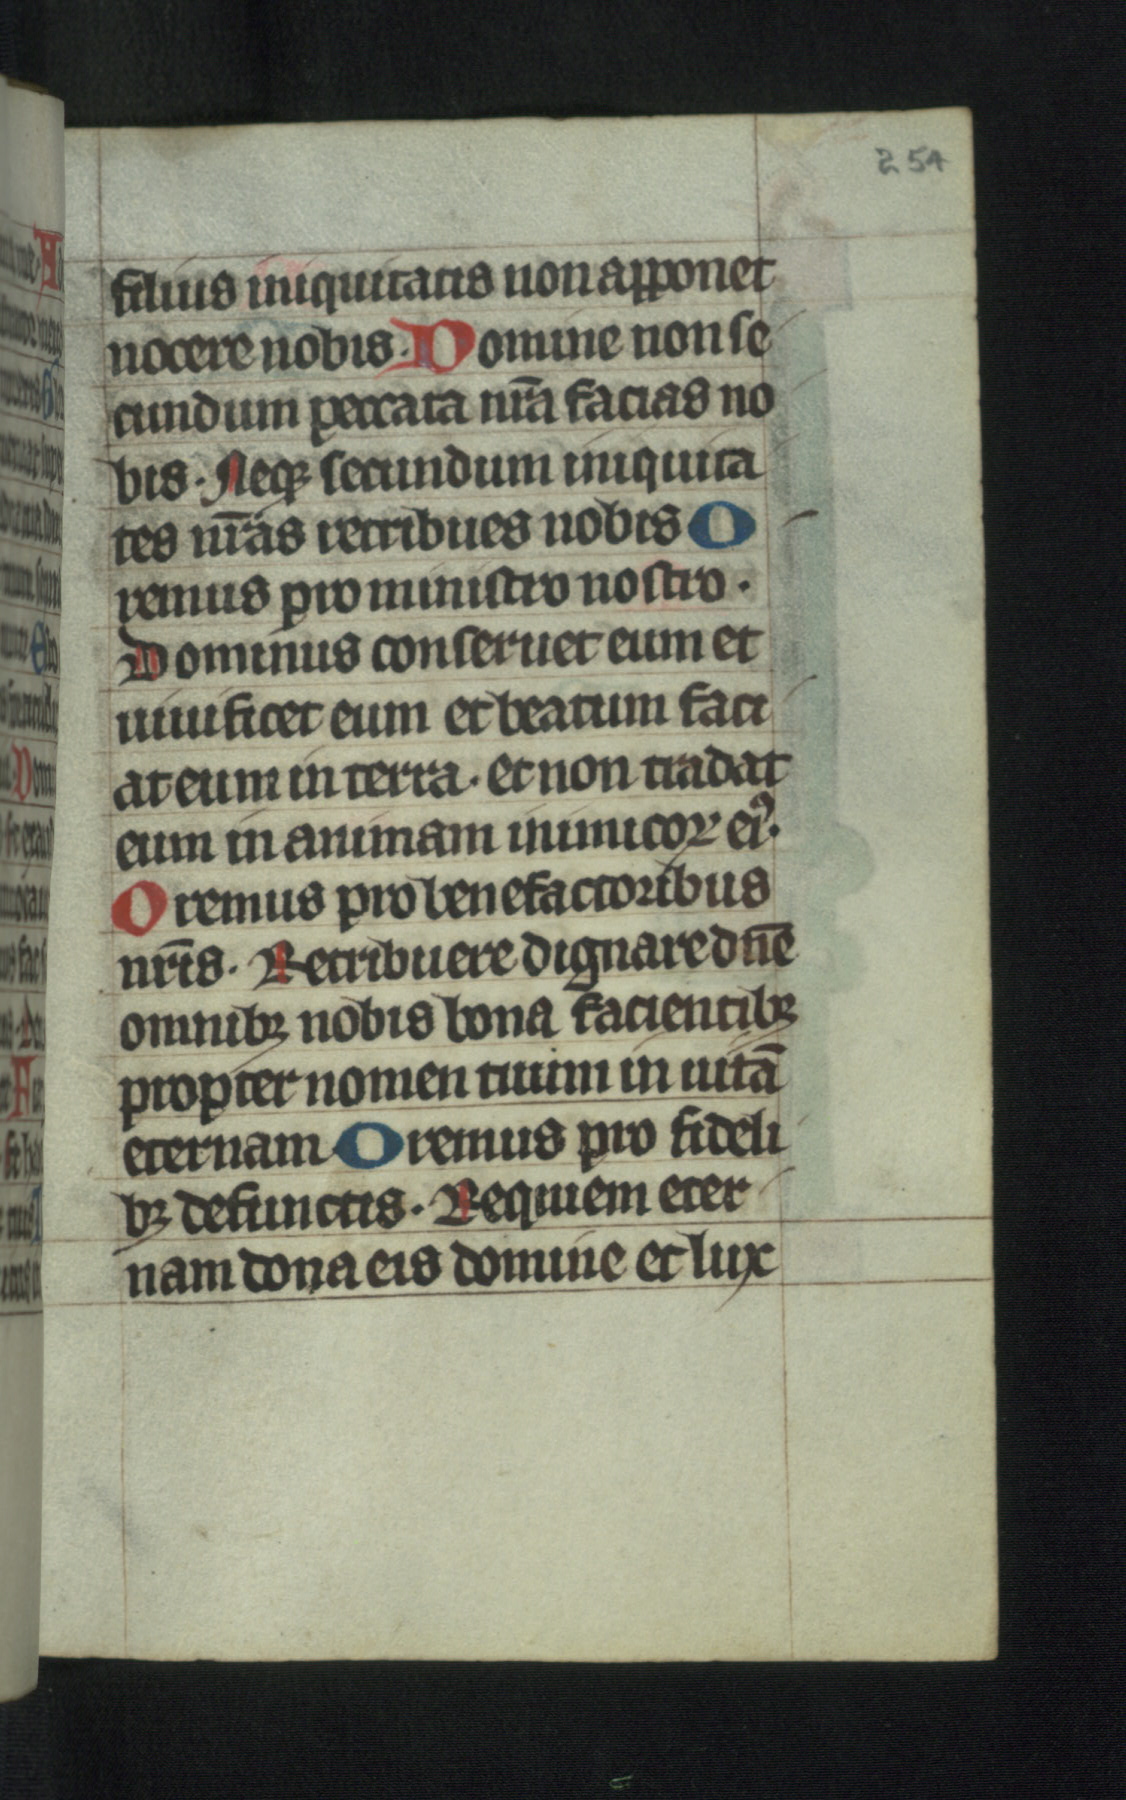 254
filius iniquitatis non apponet
nocere nobis. Domine non se
cundum peccata nr̄a facias no
bis. Neqꝫ secundum iniquita
tes nr̄as retribues nobis O
remus pro ministro nostro.
Dominus conseruet eum et
uiuificet eum et beatum faci
at eum in terra. et non tradat
eum in animam inimicoꝝ eiꝰ.
Oremus pro benefactoribus
nr̄is. Retribuere dignare dn̄e
omnibꝫ nobis bona facientibꝫ
propter nomen tuum in uitā
eternam Oremus pro fideli
bꝫ defunctis. Requiem eter
nam dona eis domine et lux